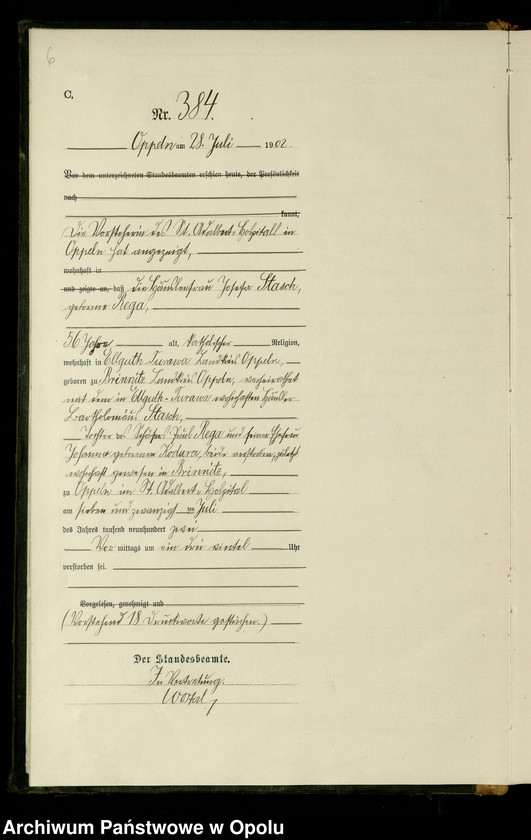 6
C.
Nr. 384.
Oppeln am 28. Juli 1902.
Vor dem unterzeichneten Standesbeamten erschien heute, der Persönlichkeit
nach
kannt,
Die Vorsteherin des St. Adalbert-Hospitals in
Oppeln hat angezeigt,
wohnhaft in
und zeigte an, daß die Händlerfrau Josefa Stasch,
geborne Rega,
56 Jahre alt, katholischer Religion,
wohnhaft in Ellguth-Turawa Landkreis Oppeln,
geboren zu Brinnitz Landkreis Oppeln, verheirathet
mit dem in Ellguth-Turawa wohnhaften Händler
Bartholomäus Stasch,
Tochter des Schäfers Paul Rega und seiner Ehefrau
Johanna geborenen Kodura, beide verstorben, zuletzt
wohnhaft gewesen in Brinnitz,
zu Oppeln im St. Adalbert-Hospital
am sieben und zwanzigsten Juli
des Jahres tausend neunhundert zwei
Vor mittags um ein drei viertel Uhr
verstorben sei.
Vorgelesen, genehmigt und
(Vorstehend 18 Druckworte gestrichen.)
Der Standesbeamte.
In Vertretung.
Archiwum Państwowe w Opolu